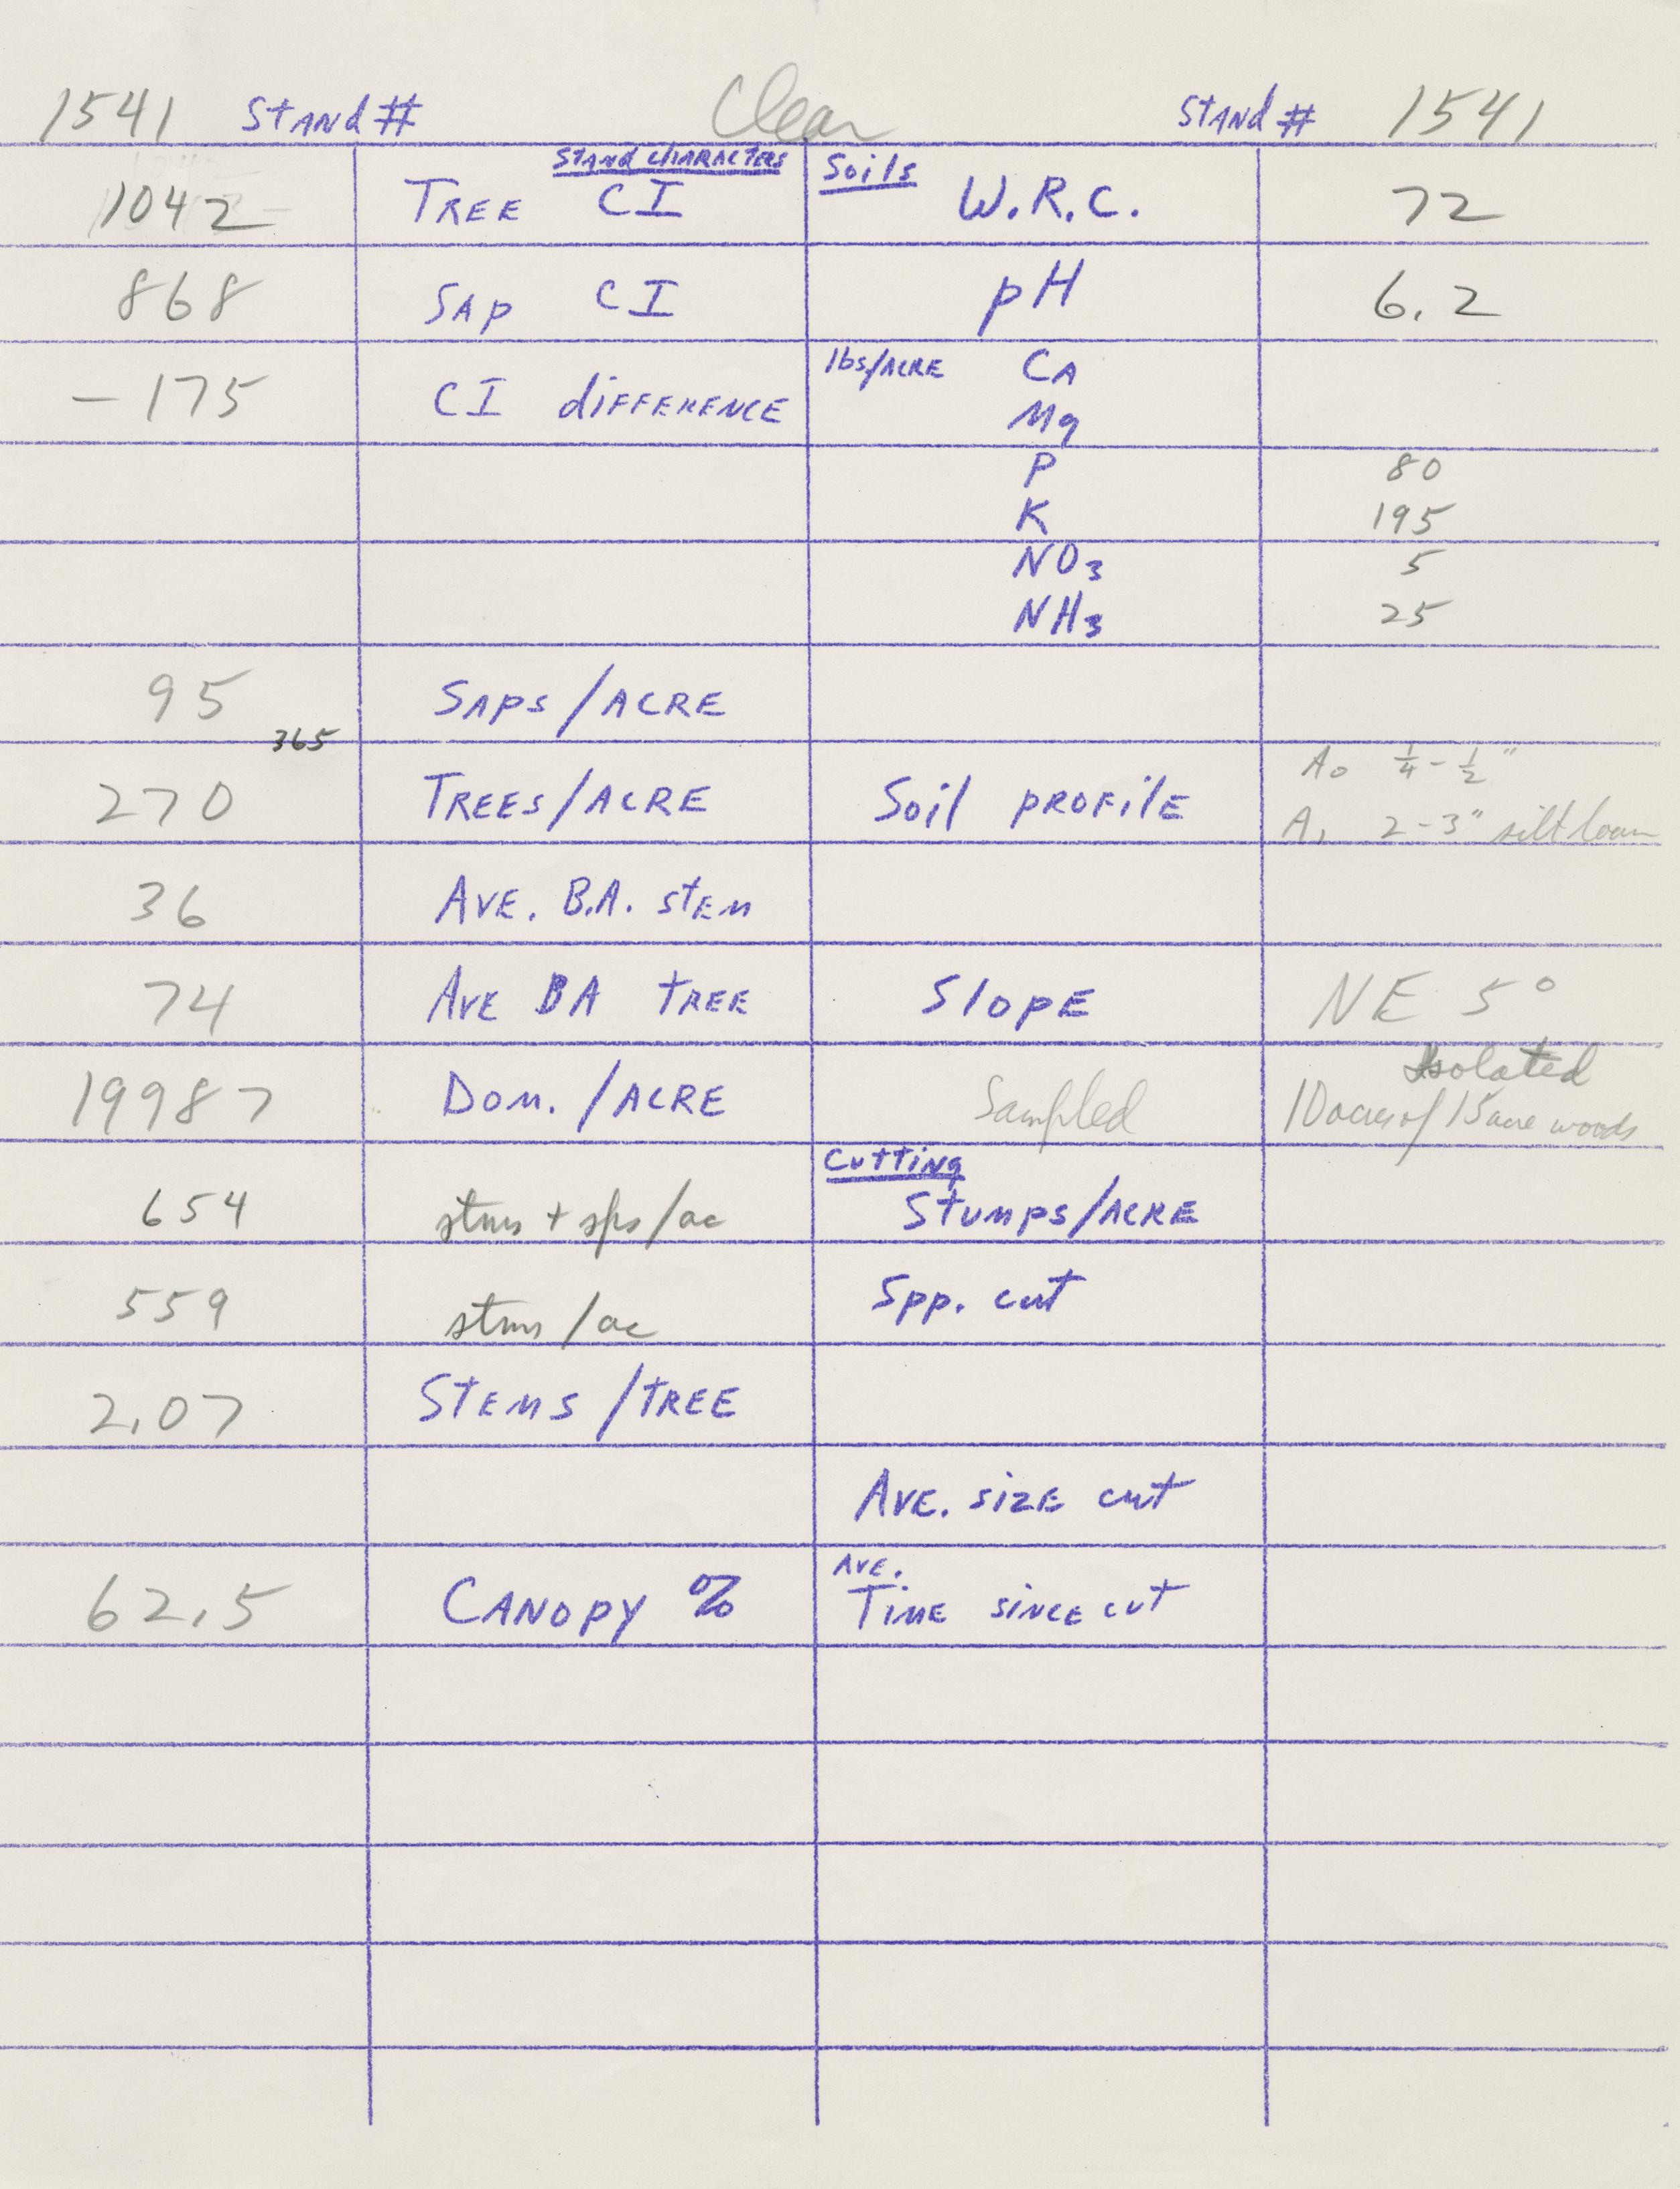 1541 Stand # Clear Stand # 1541
Stand Characters Soils
1042 Tree CI W.R.C. 72
868 Sap CI pH 6.2
-175 CI difference lbs/Acre Ca
Mg
P 80
K 195
NO3 5
NH3 25
95 Saps/Acre
365
270 Trees/Acre Soil profile A0 1/4-1/2"
A1 2-3" silt loam
36 Ave. B.A. stem
74 Ave BA tree Slope NE 5°
19987 Dom./Acre Sampled Isolated
10 acres of 15 acre woods
Cutting
654 stms + sps/ac Stumps/Acre
559 stms/ac Spp. cut
2.07 Stems/tree
Ave. size cut
62.5 Canopy % Ave. Time since cut